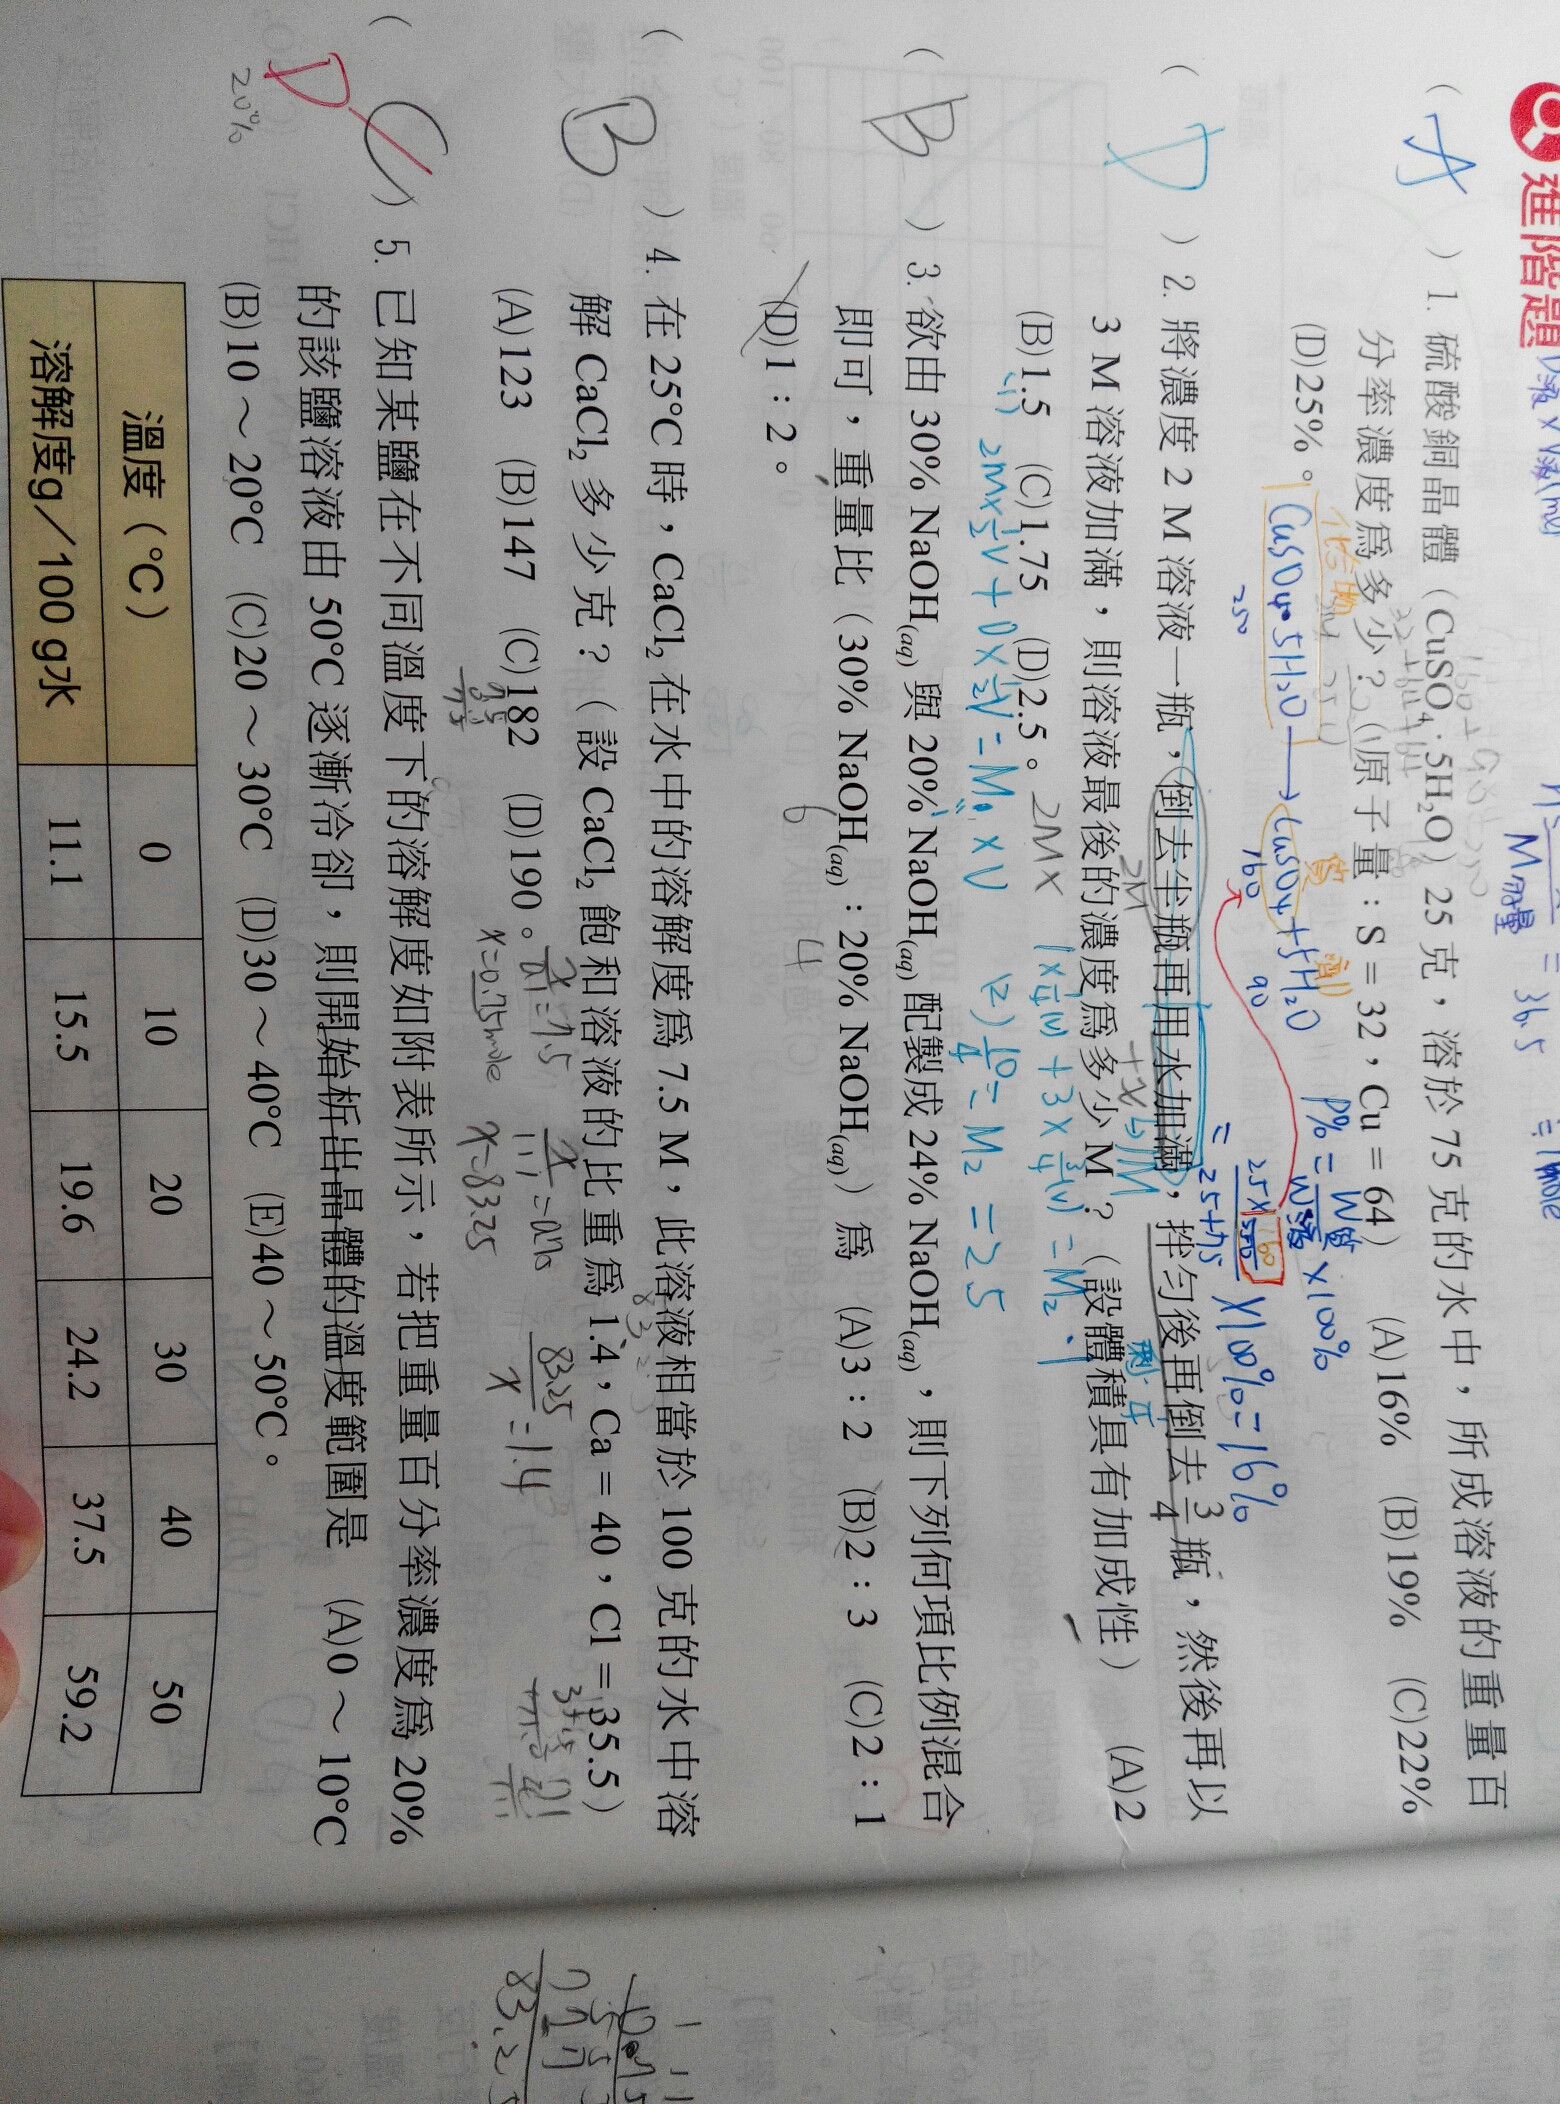 進階題
(A) 1. 硫酸銅晶體（CuSO₄·5H₂O）25 克，溶於 75 克的水中，所成溶液的重量百
分率濃度為多少？（原子量：S = 32，Cu = 64） (A)16% (B)19% (C)22%
(D)25%。
CuSO₄·5H₂O → CuSO₄ + 5H₂O
250 160 90
P% = W質/W液 × 100%
= 25×160/250 / 25+75 × 100% = 16%
(D) 2. 將濃度 2 M 溶液一瓶，倒去半瓶再用水加滿，拌勻後再倒去 3/4 瓶，然後再以
3 M 溶液加滿，則溶液最後的濃度為多少 M？（設體積具有加成性） (A)2
(B)1.5 (C)1.75 (D)2.5。
2M×
(1) 2M×1/2V + 0×1/2V = M₁×V
1×1/4(V) + 3×3/4(V) = M₂·1
(2) 10/4 = M₂ = 2.5
(B) 3. 欲由 30% NaOH(aq) 與 20% NaOH(aq) 配製成 24% NaOH(aq)，則下列何項比例混合
即可，重量比（30% NaOH(aq)：20% NaOH(aq)）為 (A)3：2 (B)2：3 (C)2：1
(D)1：2。
6 4
(B) 4. 在 25°C 時，CaCl₂ 在水中的溶解度為 7.5 M，此溶液相當於 100 克的水中溶
解 CaCl₂ 多少克？（設 CaCl₂ 飽和溶液的比重為 1.4，Ca = 40，Cl = 35.5）
(A)123 (B)147 (C)182 (D)190。
x/0.1 = 7.5
x = 0.75mole
x = 83.25
83.25/x = 1.4
(C) 5. 已知某鹽在不同溫度下的溶解度如附表所示，若把重量百分率濃度為 20%
D
20%
的該鹽溶液由 50°C 逐漸冷卻，則開始析出晶體的溫度範圍是 (A)0～10°C
(B)10～20°C (C)20～30°C (D)30～40°C (E)40～50°C。
溫度（°C） 0 10 20 30 40 50
溶解度g／100 g水 11.1 15.5 19.6 24.2 37.5 59.2